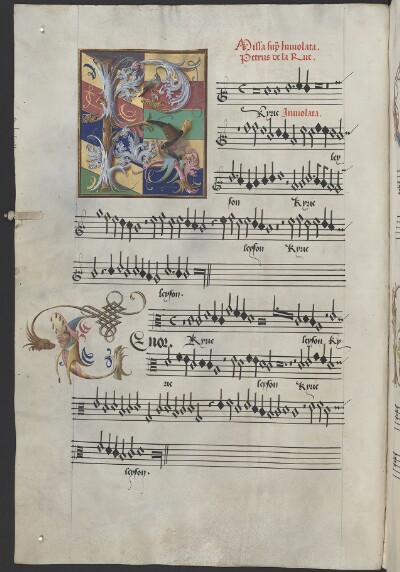 Missa sup Inviolata.
Petrus de la Rue.
Kyrie Inviolata.
ley
son Kyrie
leyson Kyrie
leyson.
Tenor. Kyrie leyson Ky
rie leyson Kyrie
leyson.